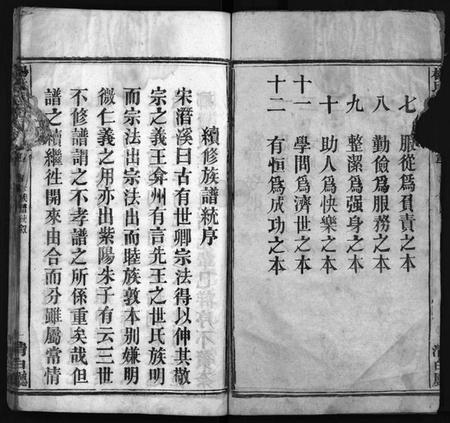 七 服從爲負責之本
八 勤儉爲服務之本
九 整潔爲强身之本
十 助人爲快樂之本
十一 學問爲濟世之本
十二 有恒爲成功之本
續修族譜統序
宋潛溪曰古有世卿宗法得以伸其敬
宗之義王弇州有言先王之世氏族明
而宗法出宗法出而睦族敦本别嫌明
微仁義之用亦出紫陽朱子有云三世
不修譜謂之不孝譜之所係重矣哉但
譜之續繼徃開來由合而分雖屬常情
清白